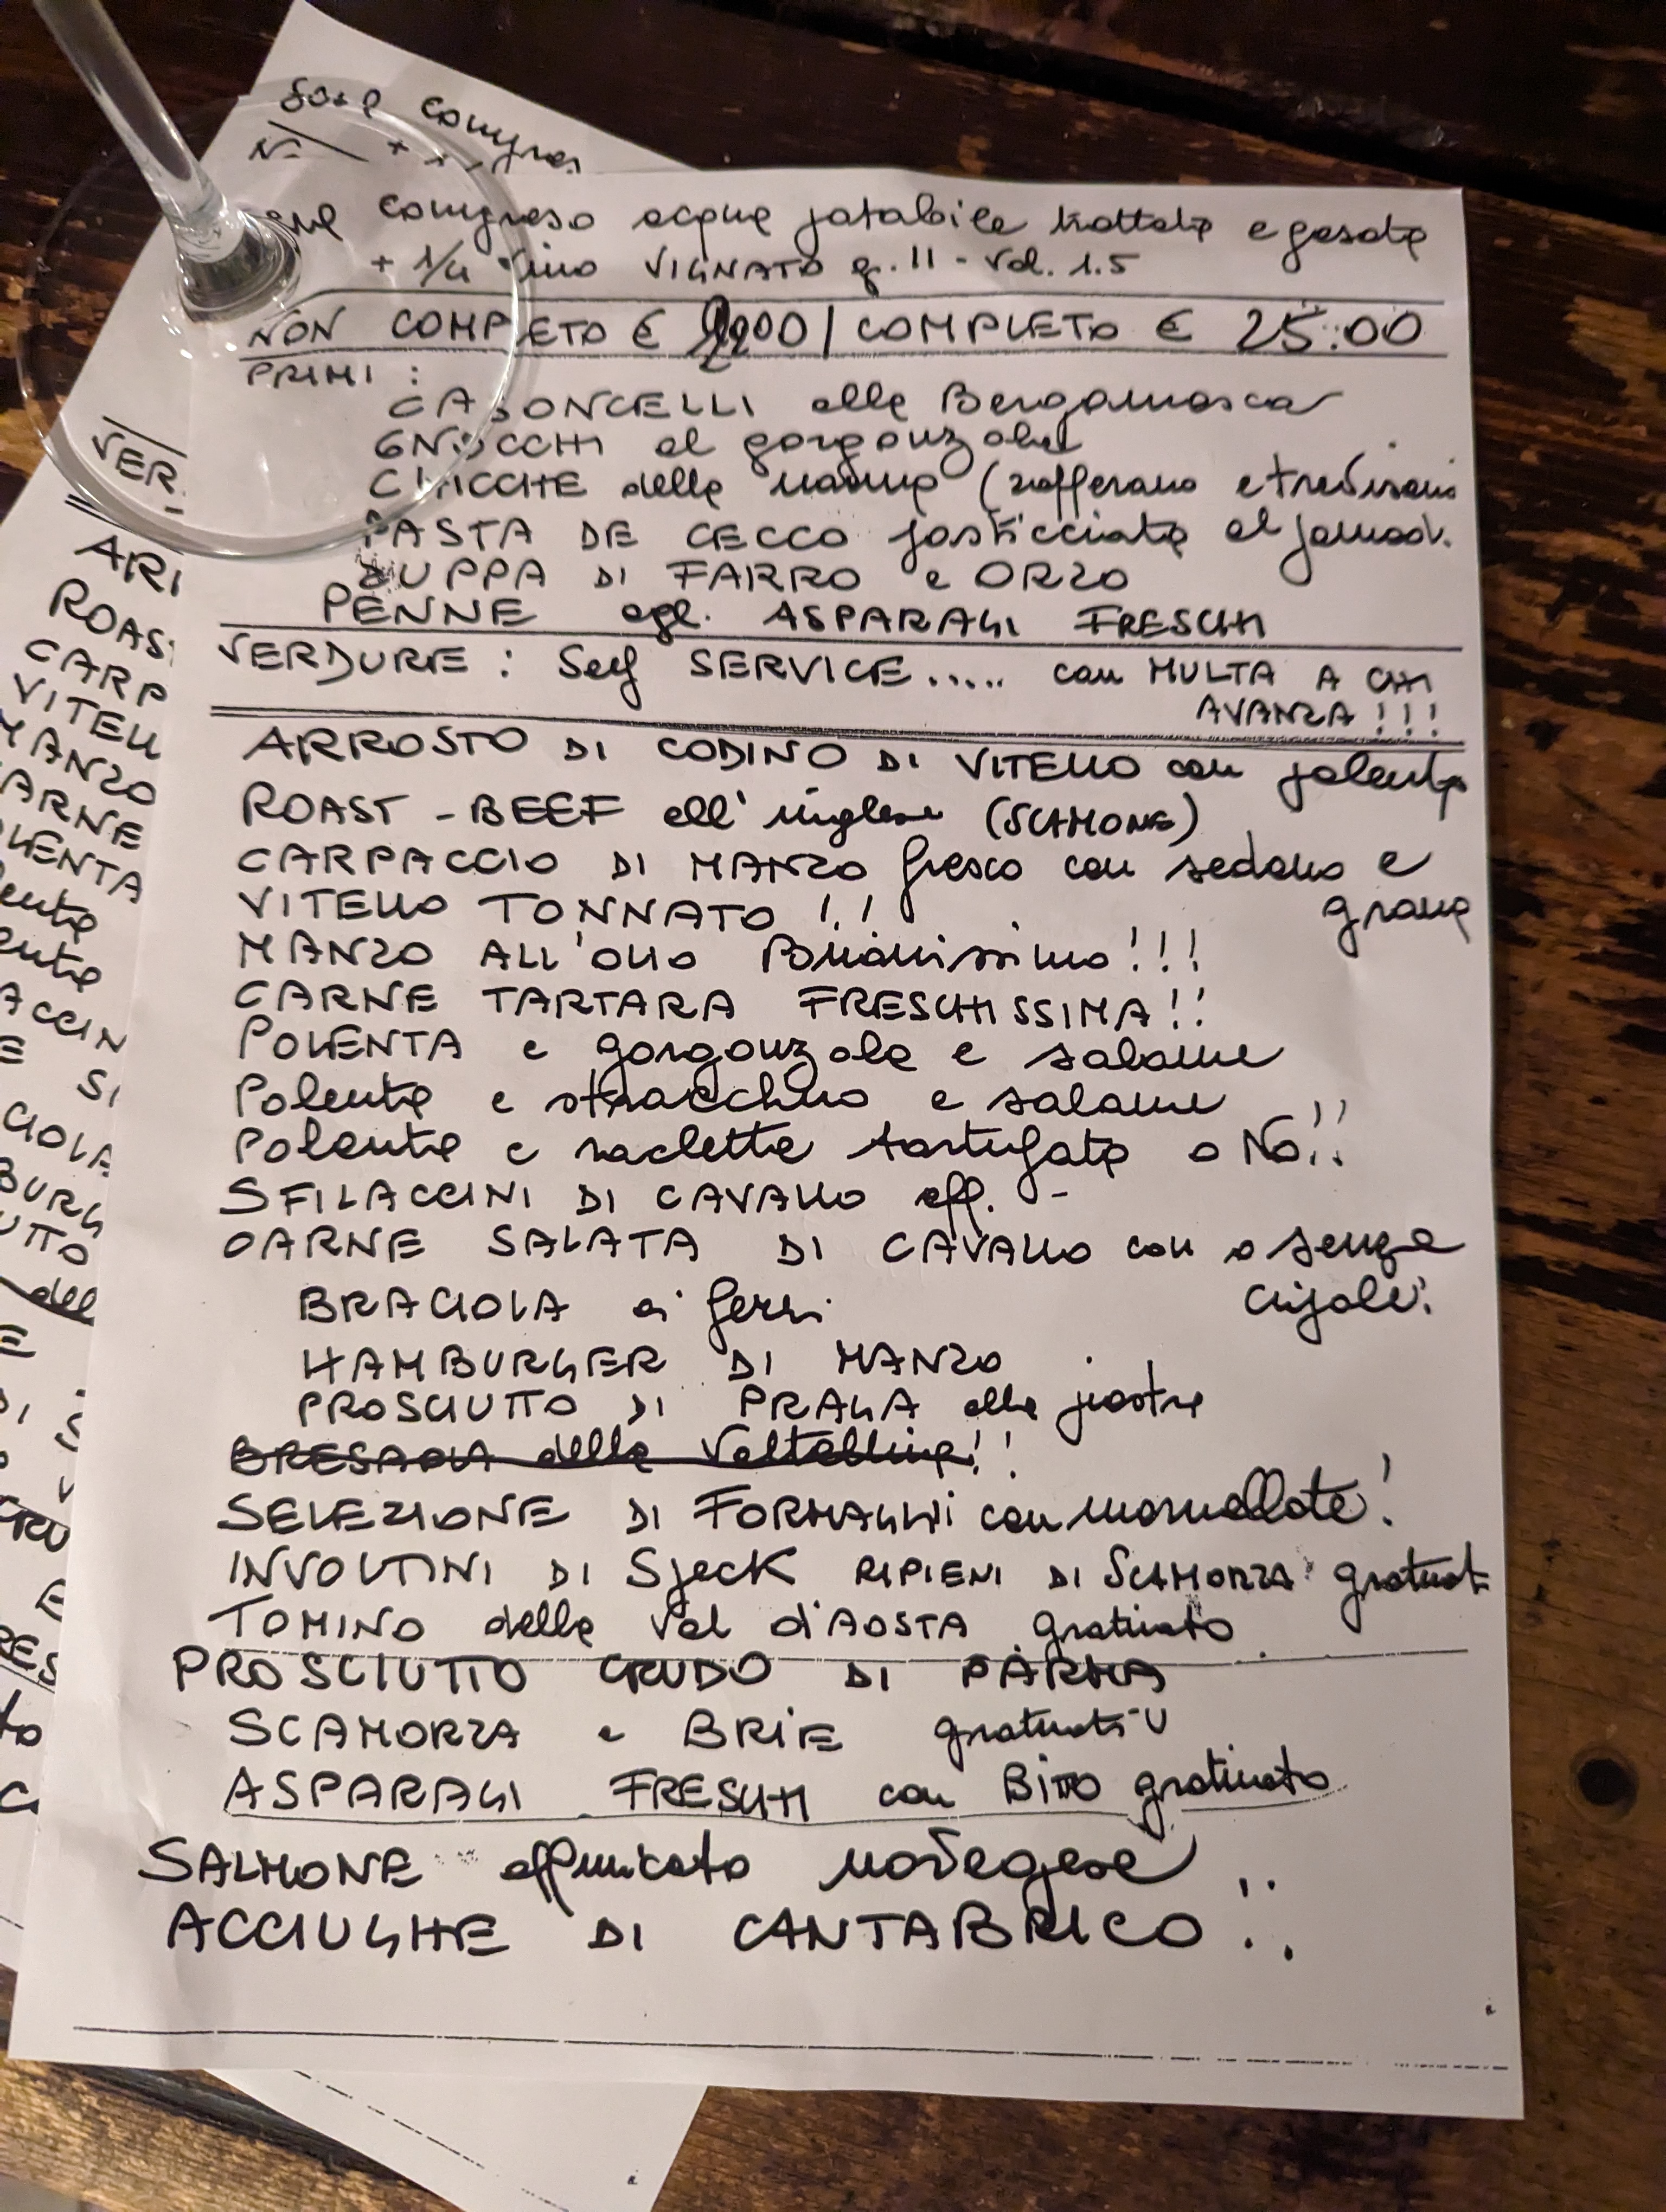 compreso
N.
compreso acqua potabile trattata e gasata
+ 1/4 vino VIGNATO g. 11 - Vol. 1.5
NON COMPLETO € | COMPLETO € 25:00
PRIMI :
CASONCELLI alla Bergamasca
GNOCCHI al gorgonzola
CHICCHE della nonna (zafferano e trevisano
PASTA DE CECCO pasticciata al pomod.
ZUPPA DI FARRO e ORZO
PENNE agl. ASPARAGI FRESCHI
VERDURE : Self SERVICE..... con MULTA A CHI
AVANZA !!!
ARROSTO DI CODINO DI VITELLO con polenta
ROAST - BEEF all'inglese (SCAMONE)
CARPACCIO DI MANZO fresco con sedano e
grana
VITELLO TONNATO !!
MANZO ALL'OLIO Buonissimo!!!
CARNE TARTARA FRESCHISSIMA!!
POLENTA e gorgonzola e salame
Polenta e stracchino e salame
Polenta e raclette tartufata o No!!
SFILACCINI DI CAVALLO aff. -
CARNE SALATA DI CAVALLO con o senza
cipolle!
BRACIOLA ai ferri
HAMBURGER DI MANZO
PROSCIUTTO DI PRAGA alla piastra
BRESAOLA della Valtellina!!
SELEZIONE DI FORMAGGI con marmellate!
INVOLTINI DI SpecK RIPIENI DI SCAMORZA gratinat
TOMINO della Val d'AOSTA gratinato
PROSCIUTTO CRUDO DI PARMA
SCAMORZA e BRIE gratinati
ASPARAGI FRESCHI con BITTO gratinato
SALMONE affumicato norvegese
ACCIUGHE DI CANTABRICO!!
VER.
ARI
ROAS
CARP
VITELL
MANZO
CARNE
OLENTA
lenta
enta
ACCIN
E SI
CIOLA
BURG
UTTO
dell
E
DI S
CRU
E
RES
to